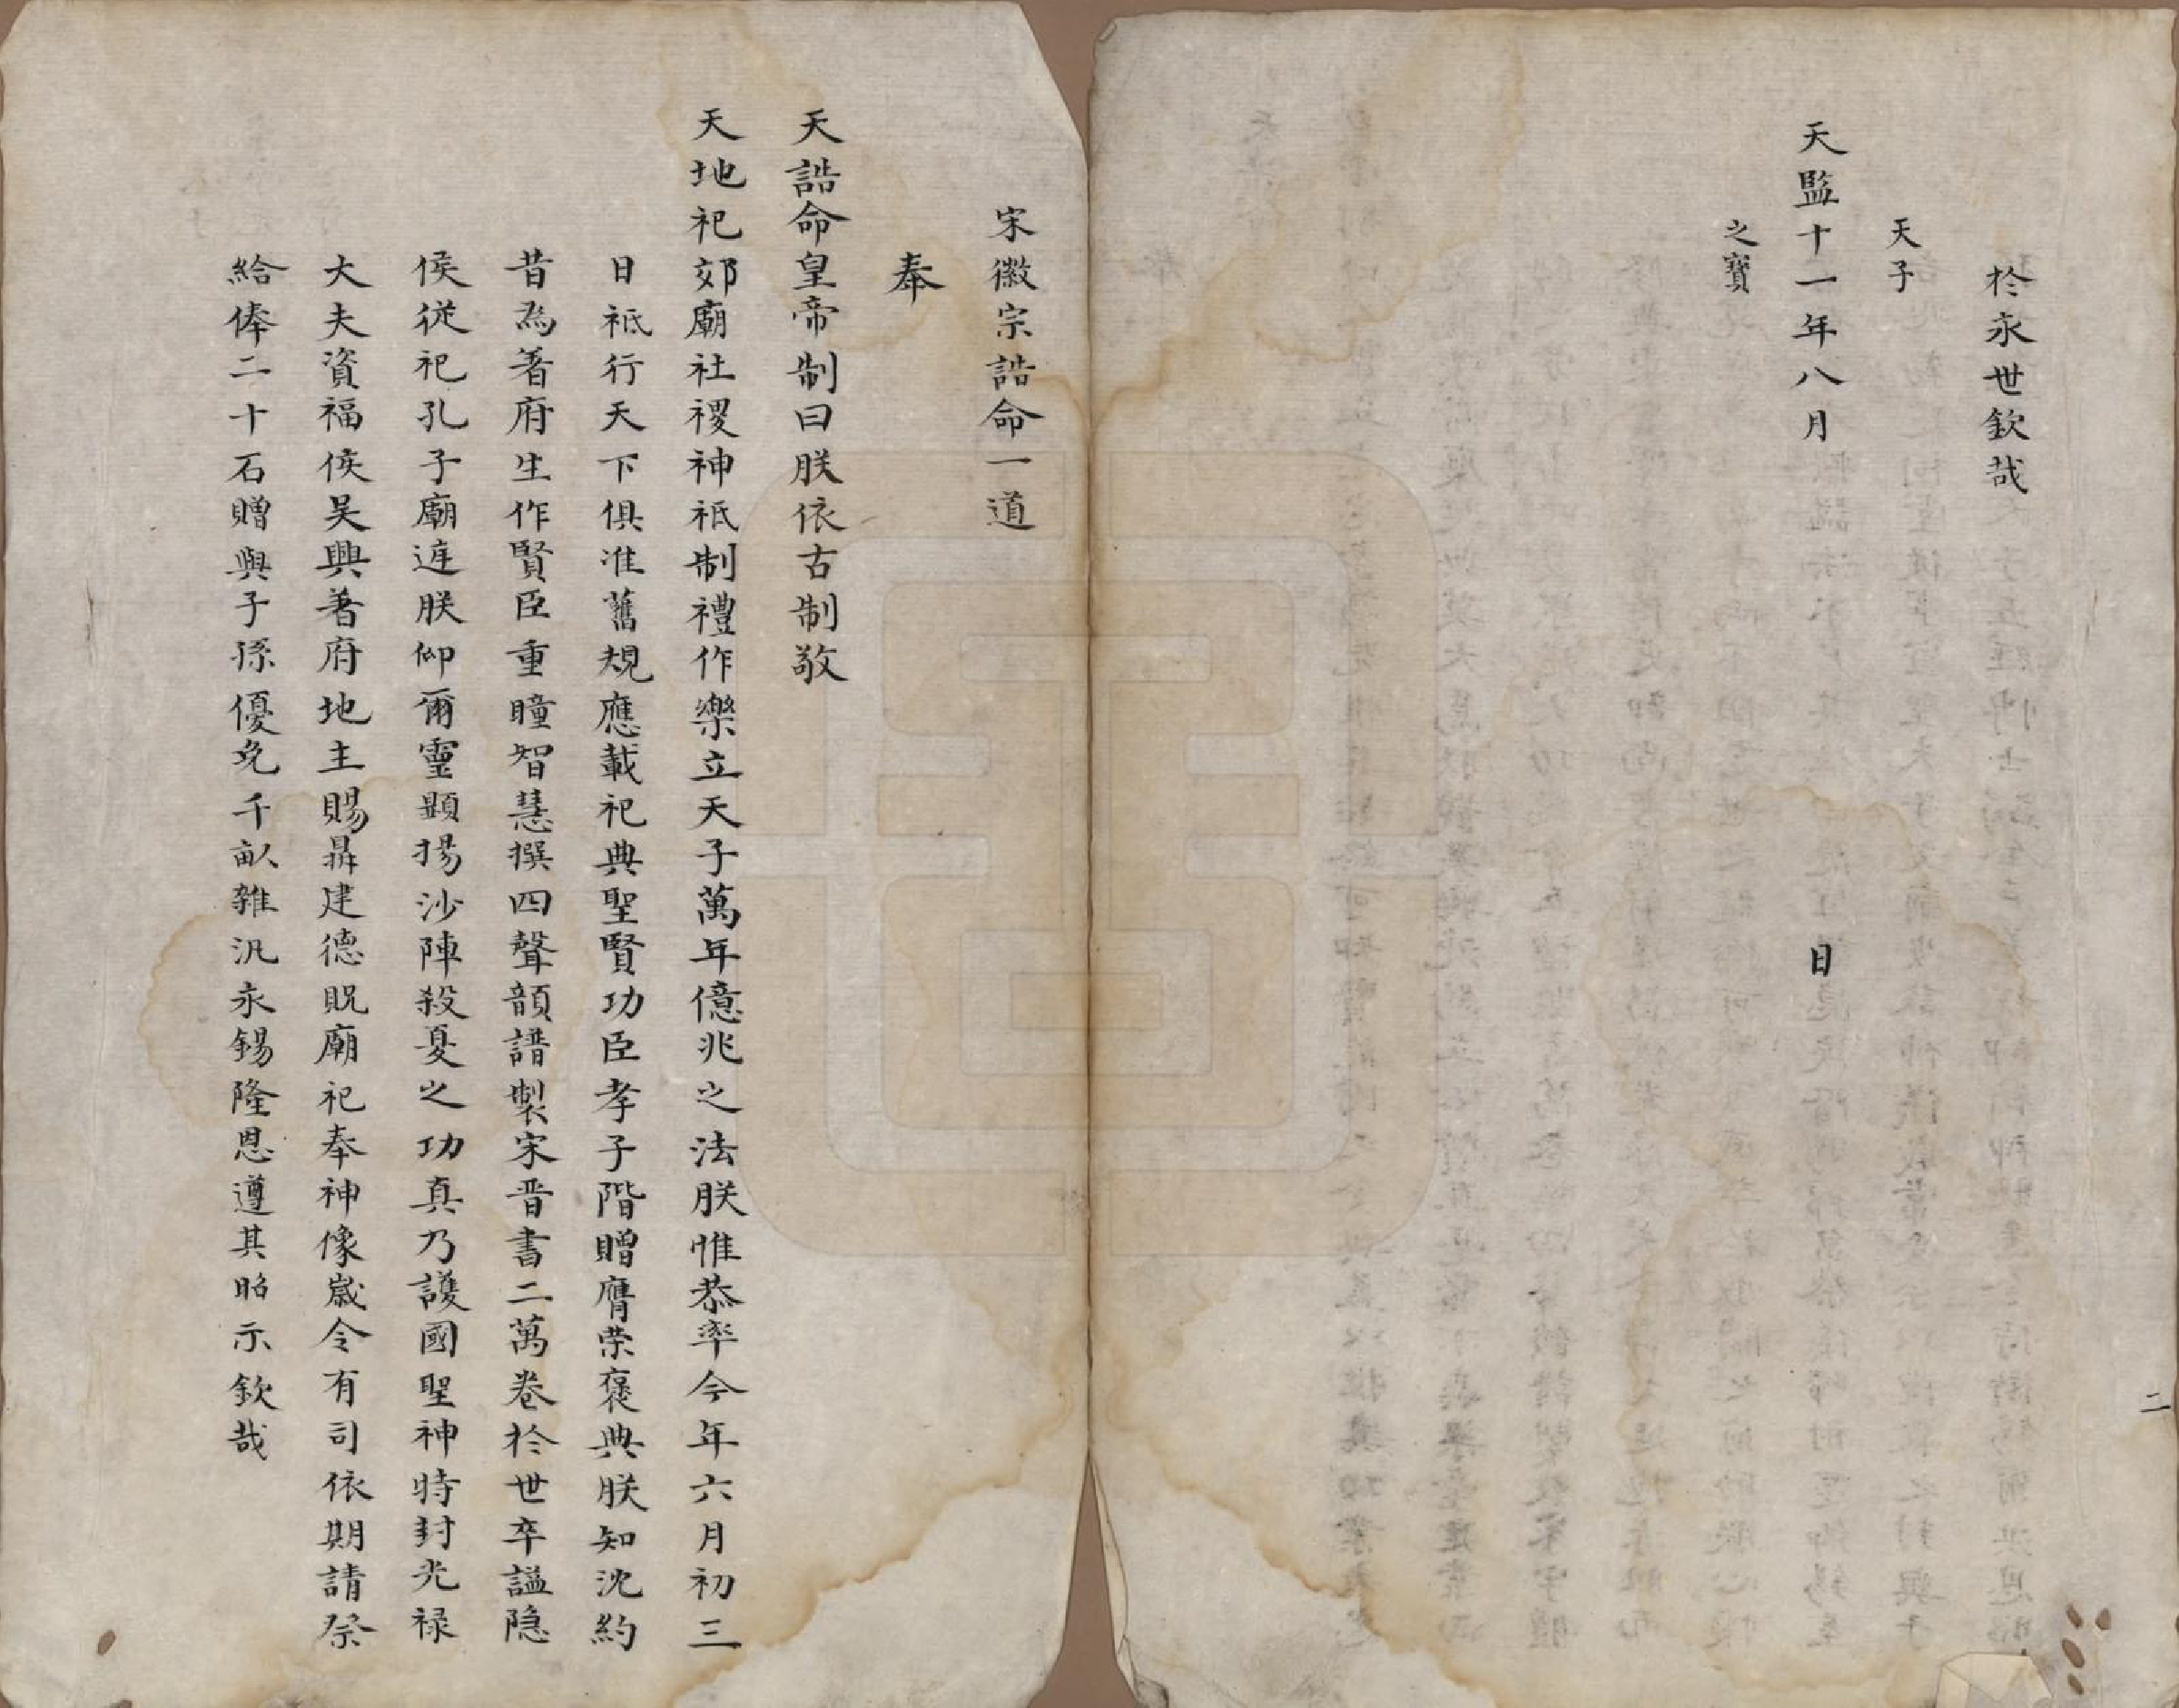 於永世欽哉
天子
天監十一年八月　日
之寶
二
宋徽宗誥命一道
奉
天誥命皇帝制曰朕依古制敬
天地祀郊廟社稷神祇制禮作樂立天子萬年億兆之法朕惟恭率今年六月初三
日祇行天下俱准舊規應載祀典聖賢功臣孝子階贈膺榮褒典朕知沈約
昔為著府生作賢臣重瞳智慧撰四聲韻譜製宋晋書二萬卷於世卒謚隐
侯從祀孔子廟遅朕仰爾靈顕揚沙陣殺戞之功真乃護國聖神時封光禄
大夫資福侯吴興著府地主賜昇建德貺廟祀奉神像嵗令有司依期請祭
給俸二十石贈與子孫優免千畝雜汎永錫隆恩遵其昭示欽哉